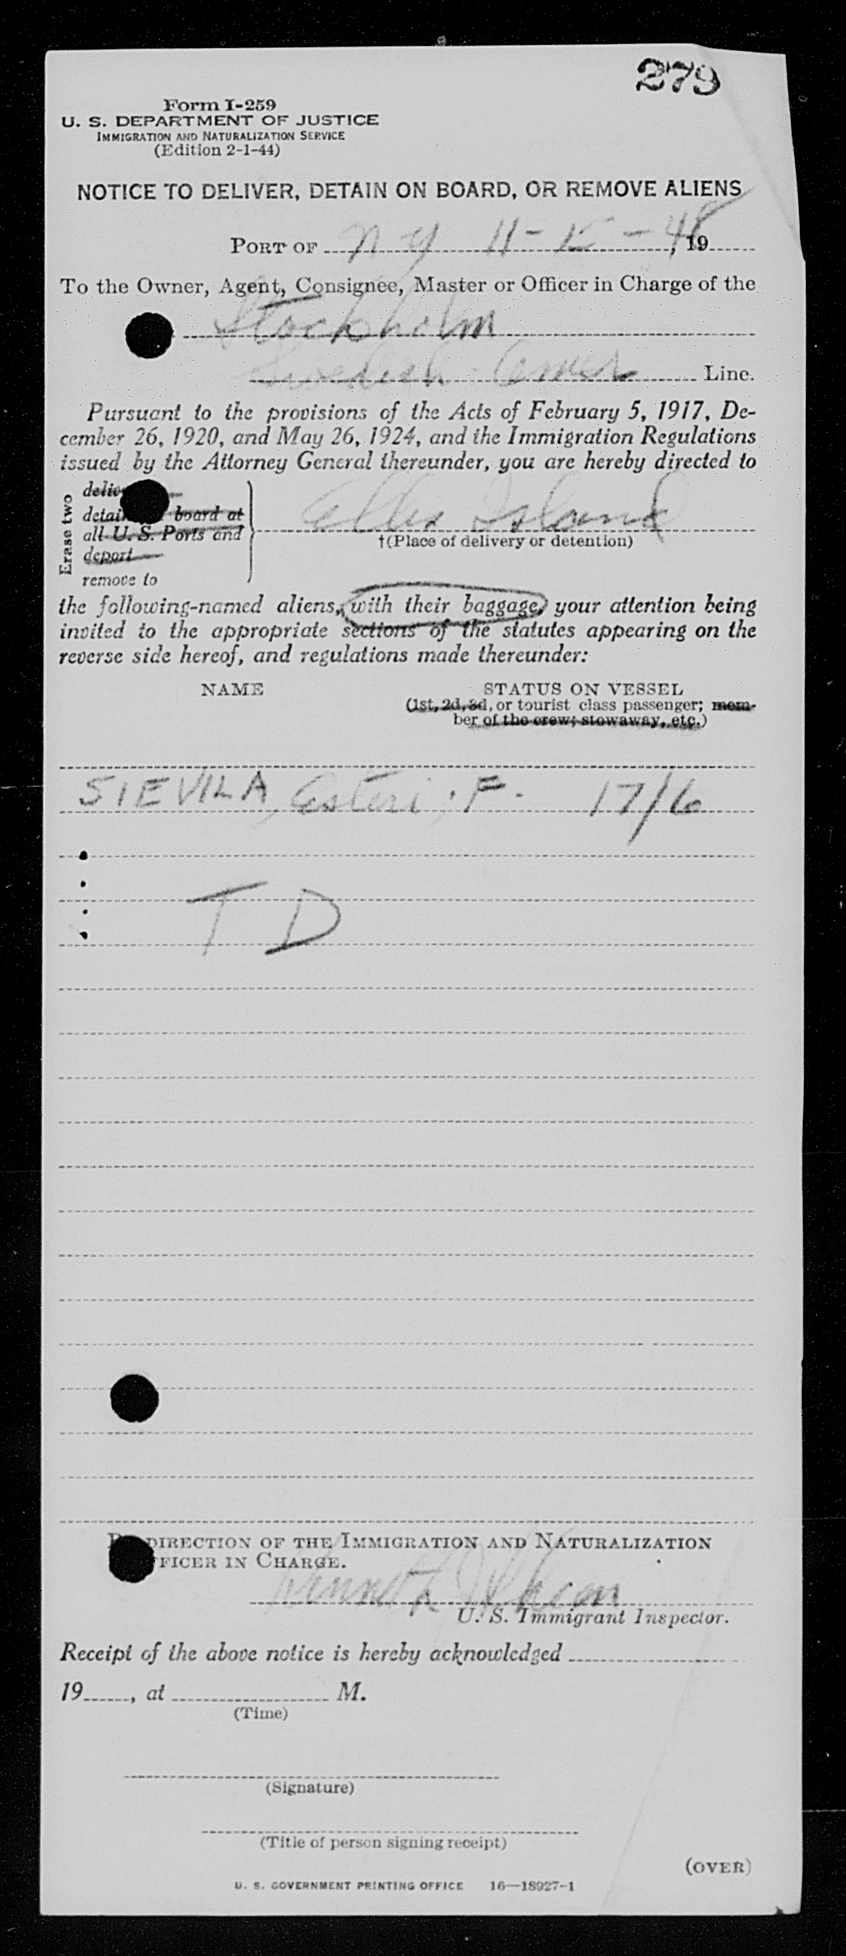 279
Form I-259
U. S. DEPARTMENT OF JUSTICE
IMMIGRATION AND NATURALIZATION SERVICE
(Edition 2-1-44)
NOTICE TO DELIVER, DETAIN ON BOARD, OR REMOVE ALIENS
PORT OF N Y 11-15-48, 19
To the Owner, Agent, Consignee, Master or Officer in Charge of the
Stockholm
Swedish Amer Line.
Pursuant to the provisions of the Acts of February 5, 1917, De-
cember 26, 1920, and May 26, 1924, and the Immigration Regulations
issued by the Attorney General thereunder, you are hereby directed to
Erase two
board at
all U. S. Ports and
deport
remove to
Ellis Island
†(Place of delivery or detention)
the following-named aliens, with their baggage, your attention being
invited to the appropriate sections of the statutes appearing on the
reverse side hereof, and regulations made thereunder:
NAME STATUS ON VESSEL
(1st, 2d, 3d, or tourist class passenger; mem-
ber of the crew; stowaway, etc.)
SIEVILA, Esteri, F. 17/6
T D
DIRECTION OF THE IMMIGRATION AND NATURALIZATION
FICER IN CHARGE.
Kenneth
U. S. Immigrant Inspector.
Receipt of the above notice is hereby acknowledged
19, at M.
(Time)
(Signature)
(Title of person signing receipt)
(OVER)
U. S. GOVERNMENT PRINTING OFFICE 16—18927-1